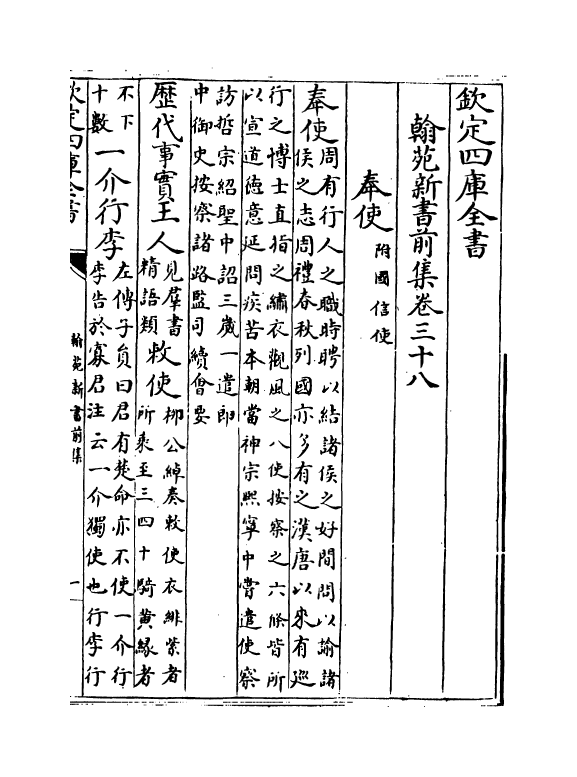 欽定四庫全書
翰苑新書前集卷三十八
奉使附國信使
奉使周有行人之職時聘以結諸侯之好間問以諭諸
侯之志周禮春秋列國亦多有之漢唐以來有巡
行之博士直指之繡衣觀風之八使按察之六條皆所
以宣道德意延問疾苦本朝當神宗熙寧中嘗遣使察
訪哲宗紹聖中詔三歲一遣郎
中御史按察諸路監司續會要
歴代事實王人見羣書
精語類敕使柳公綽奏敕使衣緋紫者
所乘至三四十騎黄縁者
不下
十數一介行李左傳子員曰君有楚命亦不使一介行
李告於寡君注云一介獨使也行李行
欽定四庫全書
翰苑新書前集
一